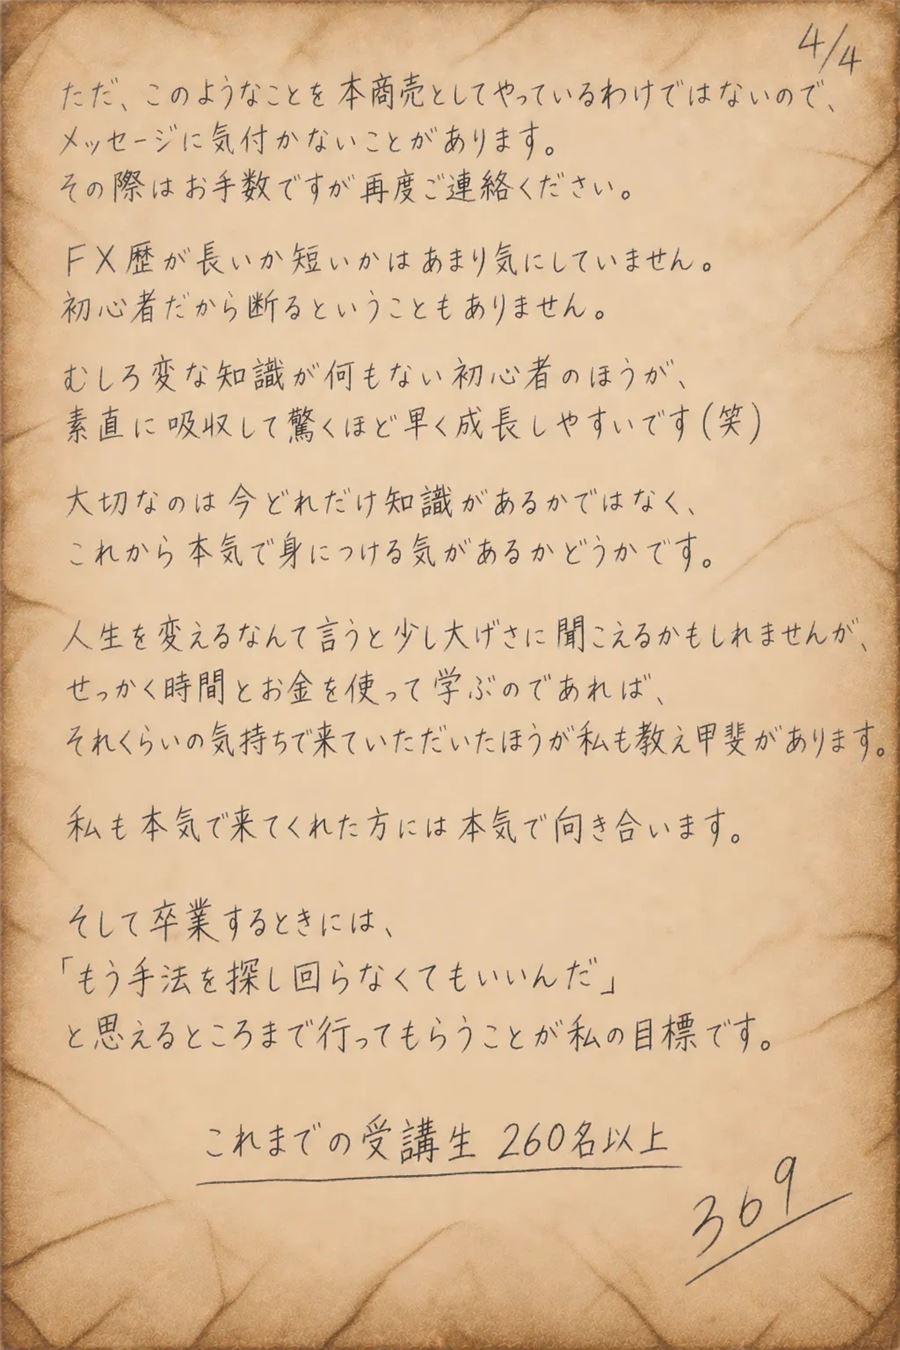 4/4
ただ、このようなことを本商売としてやっているわけではないので、
メッセージに気付かないことがあります。
その際はお手数ですが再度ご連絡ください。
FX歴が長いか短いかはあまり気にしていません。
初心者だから断るということもありません。
むしろ変な知識が何もない初心者のほうが、
素直に吸収して驚くほど早く成長しやすいです(笑)
大切なのは今どれだけ知識があるかではなく、
これから本気で身につける気があるかどうかです。
人生を変えるなんて言うと少し大げさに聞こえるかもしれませんが、
せっかく時間とお金を使って学ぶのであれば、
それくらいの気持ちで来ていただいたほうが私も教え甲斐があります。
私も本気で来てくれた方には本気で向き合います。
そして卒業するときには、
「もう手法を探し回らなくてもいいんだ」
と思えるところまで行ってもらうことが私の目標です。
これまでの受講生 260名以上
369